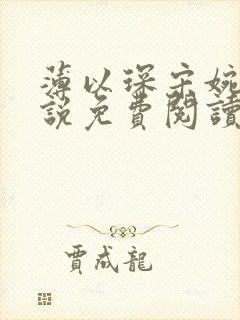 薄以琛宋婉
說免費閱讀
賈成龍